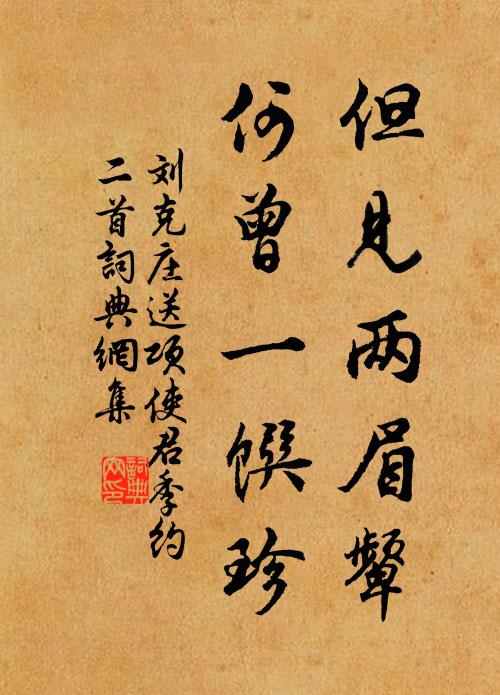 但见两眉颦
何曾一馔珍
刘克庄送项使君季约
二首詞典網集
詞典
网印